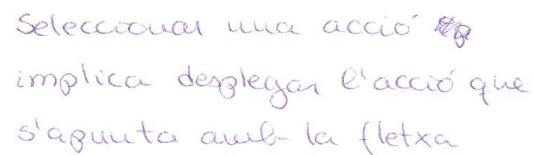 Seleccionar una acció
implica desplegar l'acció que
s'apunta amb la fletxa